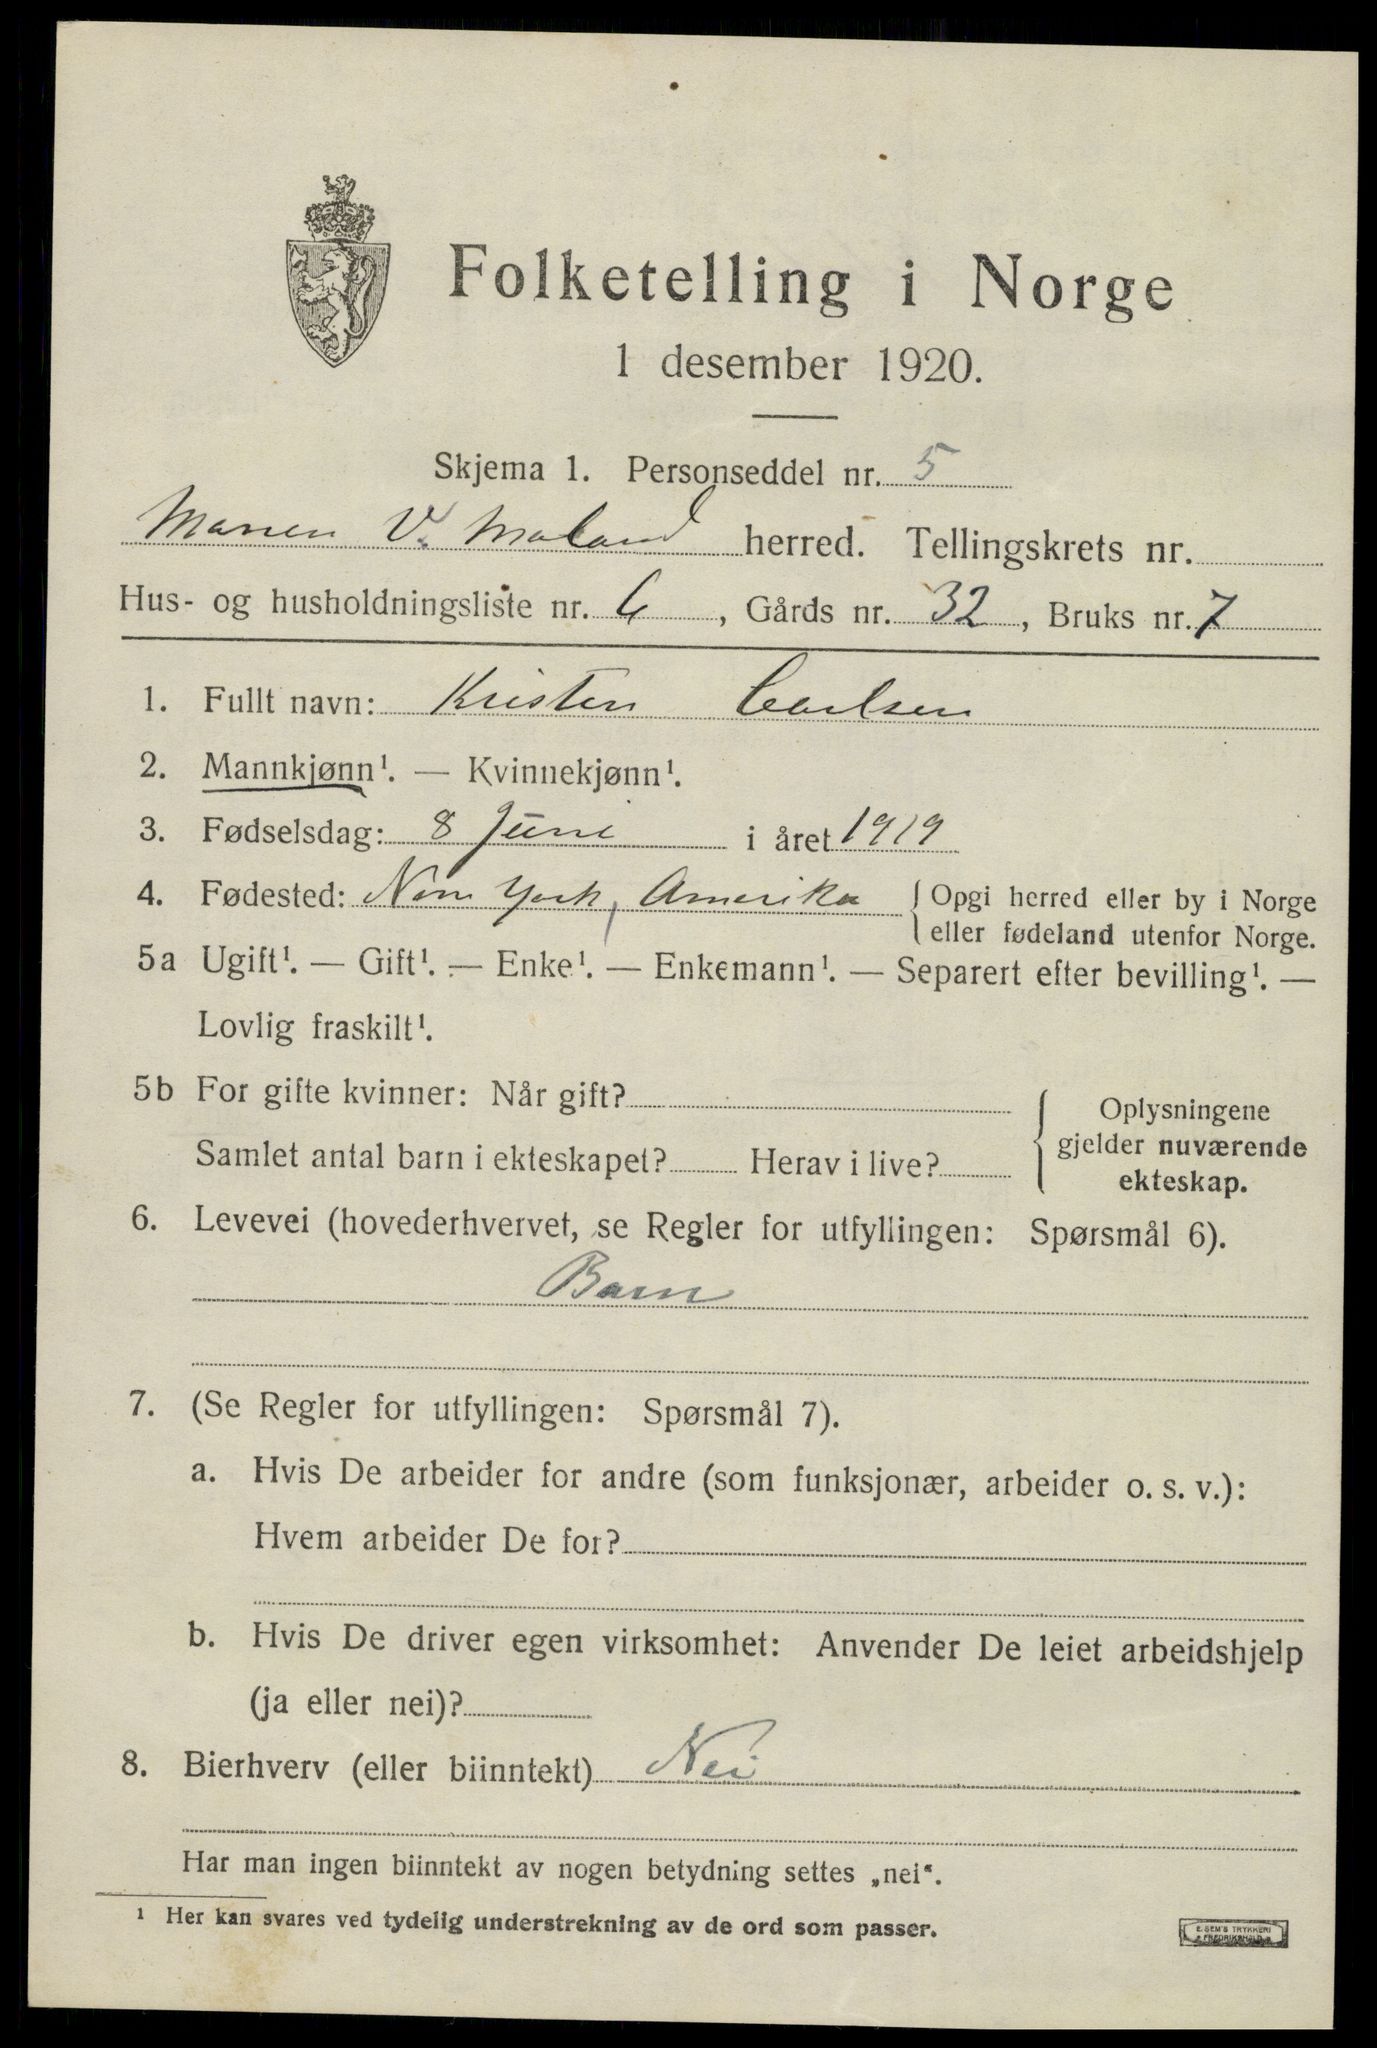 Folketelling i Norge
1 desember 1920.
Skjema 1. Personseddel nr. 5
V. Moland herred. Tellingskrets nr.
Hus- og husholdningsliste nr. 6, Gårds nr. 32, Bruks nr. 7
1. Fullt navn: Kristen Carlsen
2. Mannkjønn¹. — Kvinnekjønn¹.
3. Fødselsdag: 8 Juni i året 1919
4. Fødested: New York, Amerika { Opgi herred eller by i Norge
eller fødeland utenfor Norge.
5a Ugift¹. — Gift¹. — Enke¹. — Enkemann¹. — Separert efter bevilling¹. —
Lovlig fraskilt¹.
5b For gifte kvinner: Når gift?
Samlet antal barn i ekteskapet? Herav i live?
{ Oplysningene
gjelder nuværende
ekteskap.
6. Levevei (hovederhvervet, se Regler for utfyllingen: Spørsmål 6).
Barn
7. (Se Regler for utfyllingen: Spørsmål 7).
a. Hvis De arbeider for andre (som funksjonær, arbeider o. s. v.):
Hvem arbeider De for?
b. Hvis De driver egen virksomhet: Anvender De leiet arbeidshjelp
(ja eller nei)?
8. Bierhverv (eller biinntekt) Nei
Har man ingen biinntekt av nogen betydning settes „nei“.
¹ Her kan svares ved tydelig understrekning av de ord som passer.
E. SEM'S TRYKKERI
FREDRIKSHALD